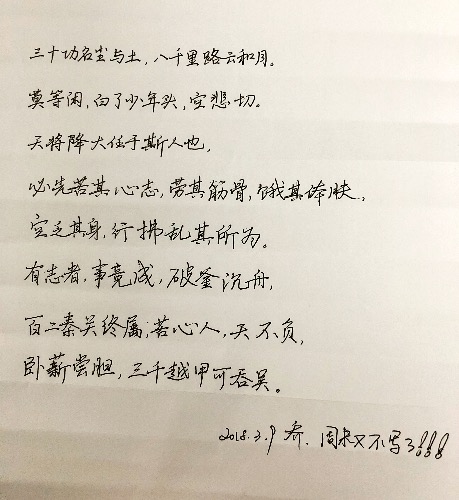 三十功名尘与土，八千里路云和月。
莫等闲，白了少年头，空悲切。
天将降大任于斯人也，
必先苦其心志，劳其筋骨，饿其体肤，
空乏其身，行拂乱其所为。
有志者，事竟成，破釜沉舟，
百二秦关终属，苦心人，天不负，
卧薪尝胆，三千越甲可吞吴。
2018.3.9 乔. 周末又不写了!!!